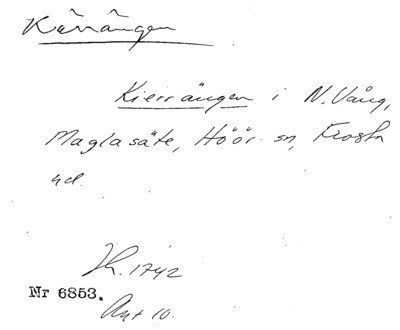 Kärrängen
Kierrängen i N. Vång,
Maglasäte, Höör sn, Frosta
hd.
Jk. 1742
Nr 6853.
Akt 10.